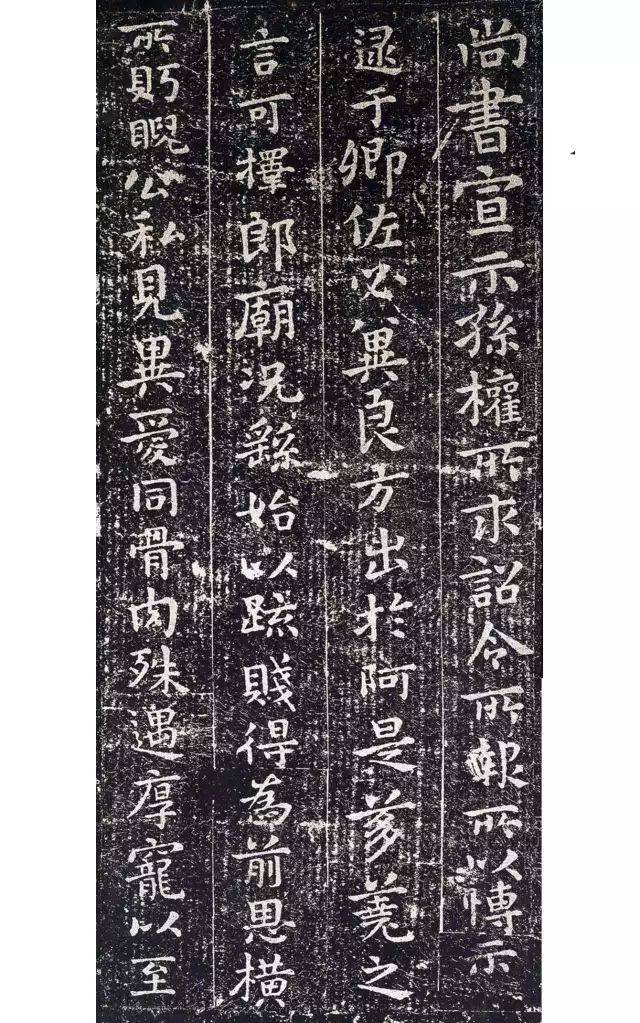 尚書宣示孫權所求詔令所報所以博示
逮于卿佐必冀良方出於阿是芻蕘之
言可擇郎廟況繇始以疏賤得為前恩橫
所眄睨公私見異愛同骨肉殊遇厚寵以至